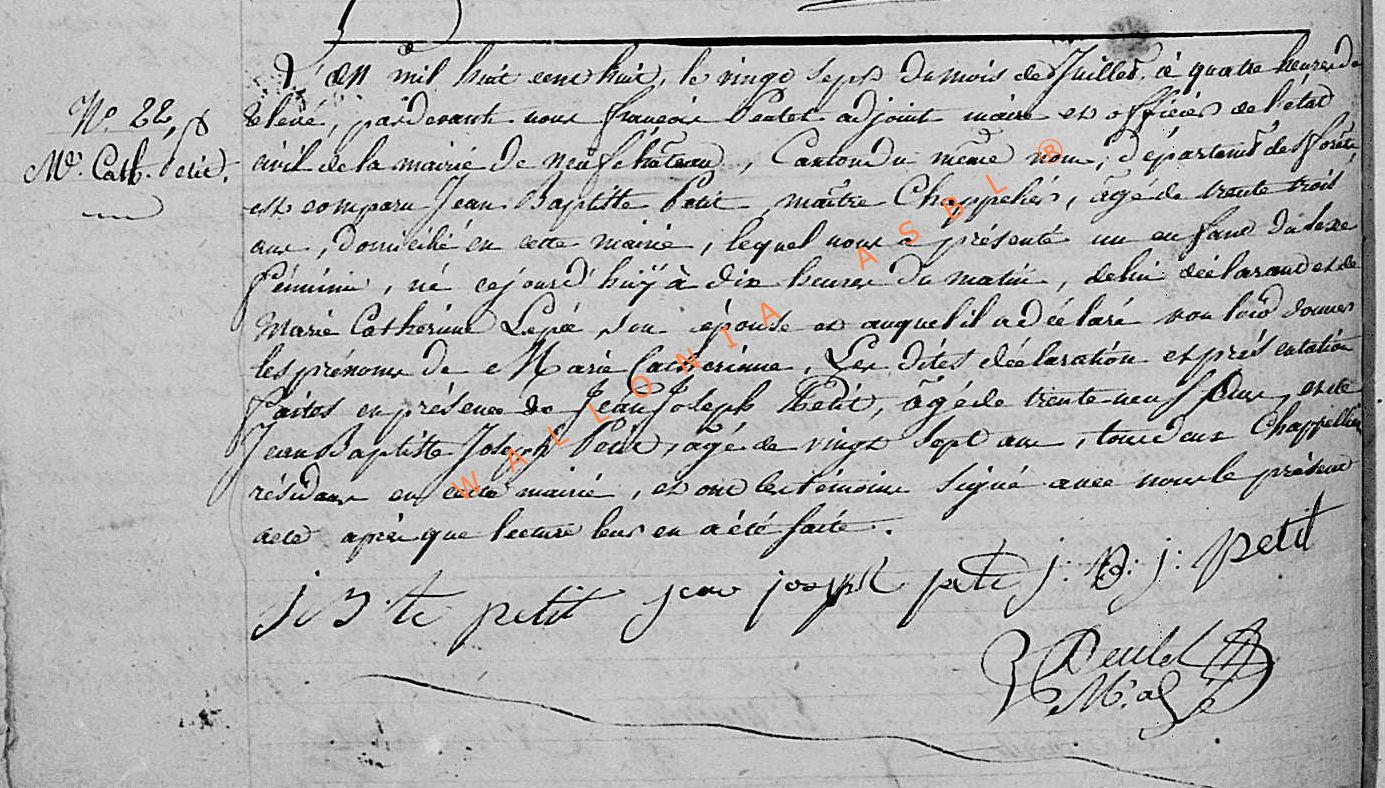 N° 22,
Me. Cath. Petit.
L'an mil huit cent huit, le vingt sept du mois de Juillet, à quatre heures de
rélevé, pardevant nous françois Peutet adjoint maire et officier de l'etat
civil de la mairie de Neufchâteau, Canton du même nom, département des forêts
est comparu Jean Baptiste Petit maître Chappelier, âgé de trente trois
ans, domicilié en cette mairie, lequel nous a présenté un enfant du sexe
féminin, né cejourd'huÿ à dix heures du matin, de lui déclarant et de
Marie Catherine Lepée son épouse et auquel il a déclaré vouloir donner
les prénoms de Marie Catherinne, Les dites déclaration et présentation
faites en présence de Jean Joseph Petit, âgé de trente neuf ans, et de
Jean Baptiste Joseph Petit, agé de vingt sept ans, tous deux Chappelliers
résidans en cette mairie, et ont les témoins signé avec nous le présent
acte après que lecture leur en a été faite.
j B te petit jean joseph petit j: B: j: petit
Peutet
M. a
WALLONIA ASBL ®